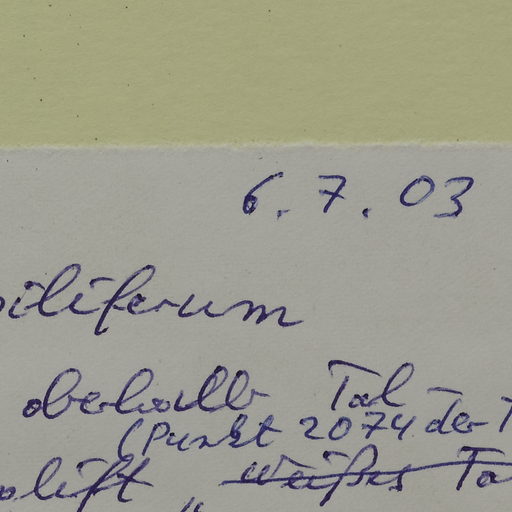 6. 7. 03
piliferum
oberhalb Tal-
(Punkt 2074 der T
olift „ weißes Ta